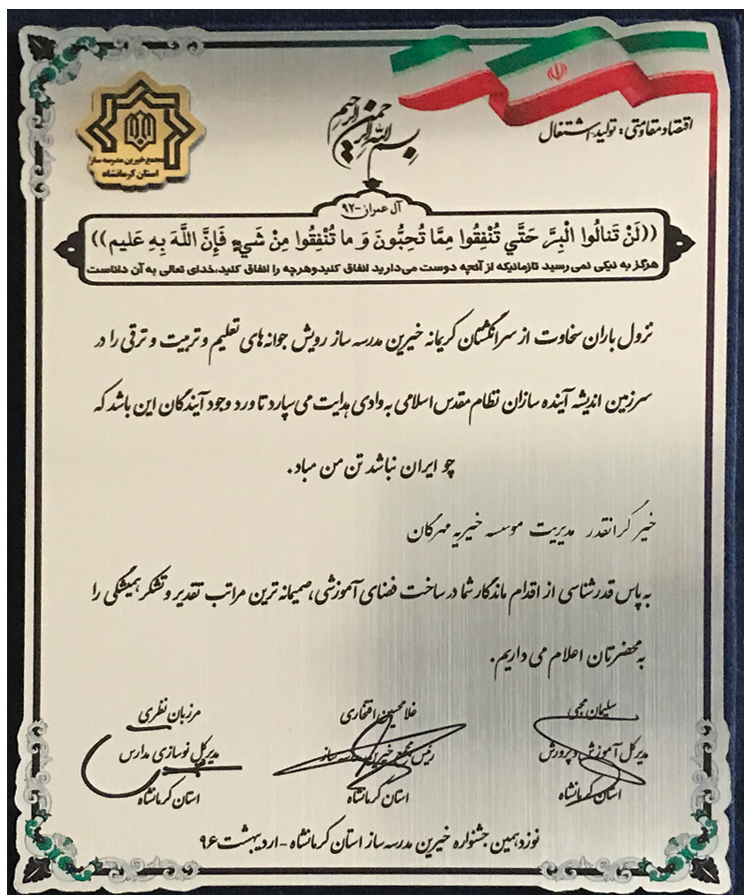 اقتصاد مقاومتی؛ تولید-اشتغال
بسم الله الرحمن الرحیم
مجمع خیرین مدرسه ساز
استان کرمانشاه
آل عمران-۹۲
((لَنْ تَنالُوا الْبِرَّ حَتَّي تُنْفِقُوا مِمَّا تُحِبُّونَ وَ ما تُنْفِقُوا مِنْ شَيْءٍ فَإِنَّ اللَّهَ بِهِ عَليم))
هرگز به نیکی نمی رسید تازمانیکه از آنچه دوست می‌دارید انفاق کنیدوهرچه را انفاق کنید،خدای تعالی به آن داناست
نزول باران سخاوت از سرانگشتان کریمانه خیرین مدرسه ساز رویش جوانه های تعلیم و تربیت و ترقی را در
سرزمین اندیشه آینده سازان نظام مقدس اسلامی به وادی هدایت می سپارد تا ورد وجود آیندگان این باشد که
چو ایران نباشد تن من مباد.
خیر گرانقدر مدیریت موسسه خیریه مهرگان
به پاس قدرشناسی از اقدام ماندگار شما در ساخت فضای آموزشی،صمیمانه ترین مراتب تقدیر و تشکر همیشگی را
به محضرتان اعلام می داریم.
سلیمان محبی
مدیرکل آموزش و پرورش
استان کرمانشاه
غلامحسین افتخاری
رئیس مجمع خیرین مدرسه ساز
استان کرمانشاه
مرزبان نظری
مدیرکل نوسازی مدارس
استان کرمانشاه
نوزدهمین جشنواره خیرین مدرسه ساز استان کرمانشاه -اردیبهشت ۹۶